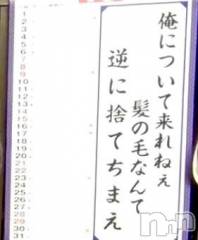 俺について来れねぇ
髪の毛なんて
逆に捨てちまえ
1
2
3
4
5
6
7
8
9
10
11
12
13
14
15
16
17
18
19
20
21
22
23
24
25
26
27
28
29
30
31